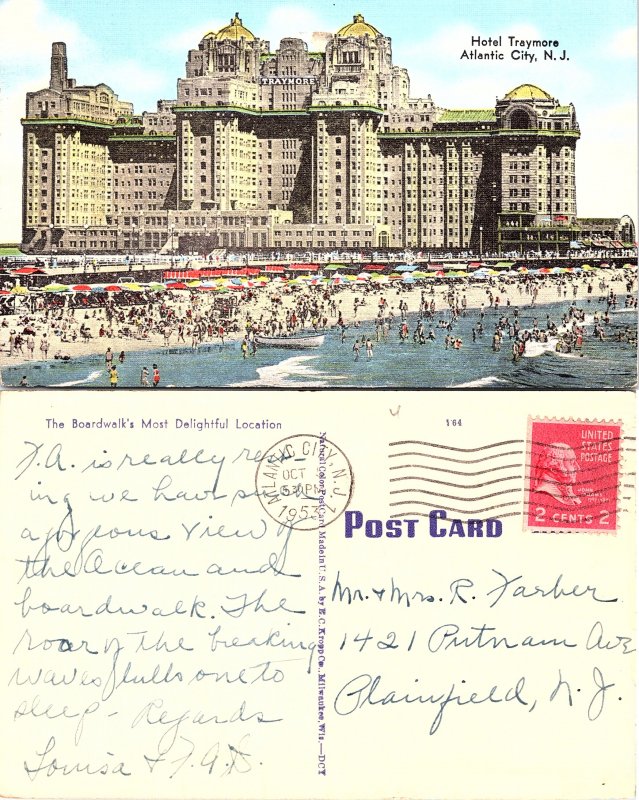 Hotel Traymore
Atlantic City, N. J.
TRAYMORE
The Boardwalk's Most Delightful Location
F.A. is really rest-
ing we have such
a gorgeous view of
the Ocean and
boardwalk. The
roar of the breaking
waves lulls one to
sleep - Regards
Louisa & F.A.D.
ATLANTIC CITY, N.J.
OCT
5 30 PM
1953
Natural Color Post Card Made in U.S.A. by E. C. Kropp Co., Milwaukee, Wis.—DCT
164
POST CARD
UNITED
STATES
POSTAGE
JOHN ADAMS
2 CENTS 2
Mr. & Mrs. R. Farber
1421 Putnam Ave
Plainfield, N.J.